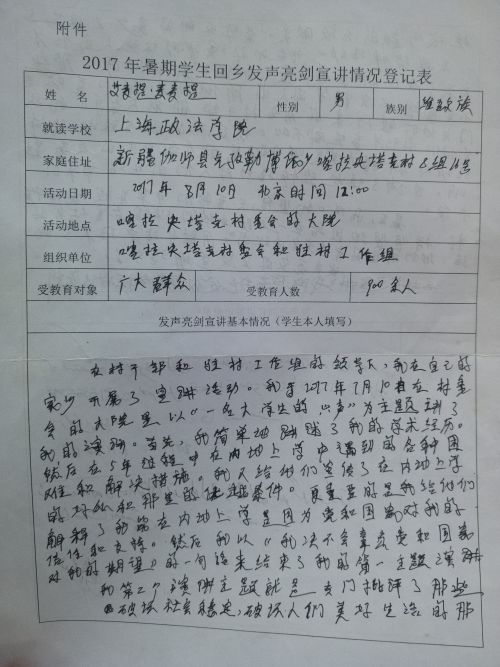 附件
2017年暑期学生回乡发声亮剑宣讲情况登记表
姓 名 艾麦提·麦麦提 性别 男 族别 维吾尔族
就读学校 上海政法学院
家庭住址 新疆伽师县克孜勒博依乡喀拉央塔克村8组
活动日期 2017年 8月10日 北京时间 12:00
活动地点 喀拉央塔克村委会的大院
组织单位 喀拉央塔克村委会和驻村工作组
受教育对象 广大群众 受教育人数 900余人
发声亮剑宣讲基本情况（学生本人填写）
在村干部和驻村工作组的领导下，我在自己的
家乡开展了宣讲活动。我于2017年7月10日在村委
会的大院里以《一名大学生的心声》为主题讲了
我的演讲。首先，我简单地讲述了我的学术经历。
然后在5年过程中在内地上学中遇到的各种困
难和解决措施。我又给他们宣传了在内地上学
的好处和那里的 条件。更重要的是我给他们
解释了我能在内地上学是因为党和国家对我的
信任和支持。然后我以《我决不会辜负党和国家
对我的期望》的一句话来结束了我的第一主题演讲
我第二个演讲主题就是专门批评了那些
破坏社会稳定，破坏人们美好生活的那